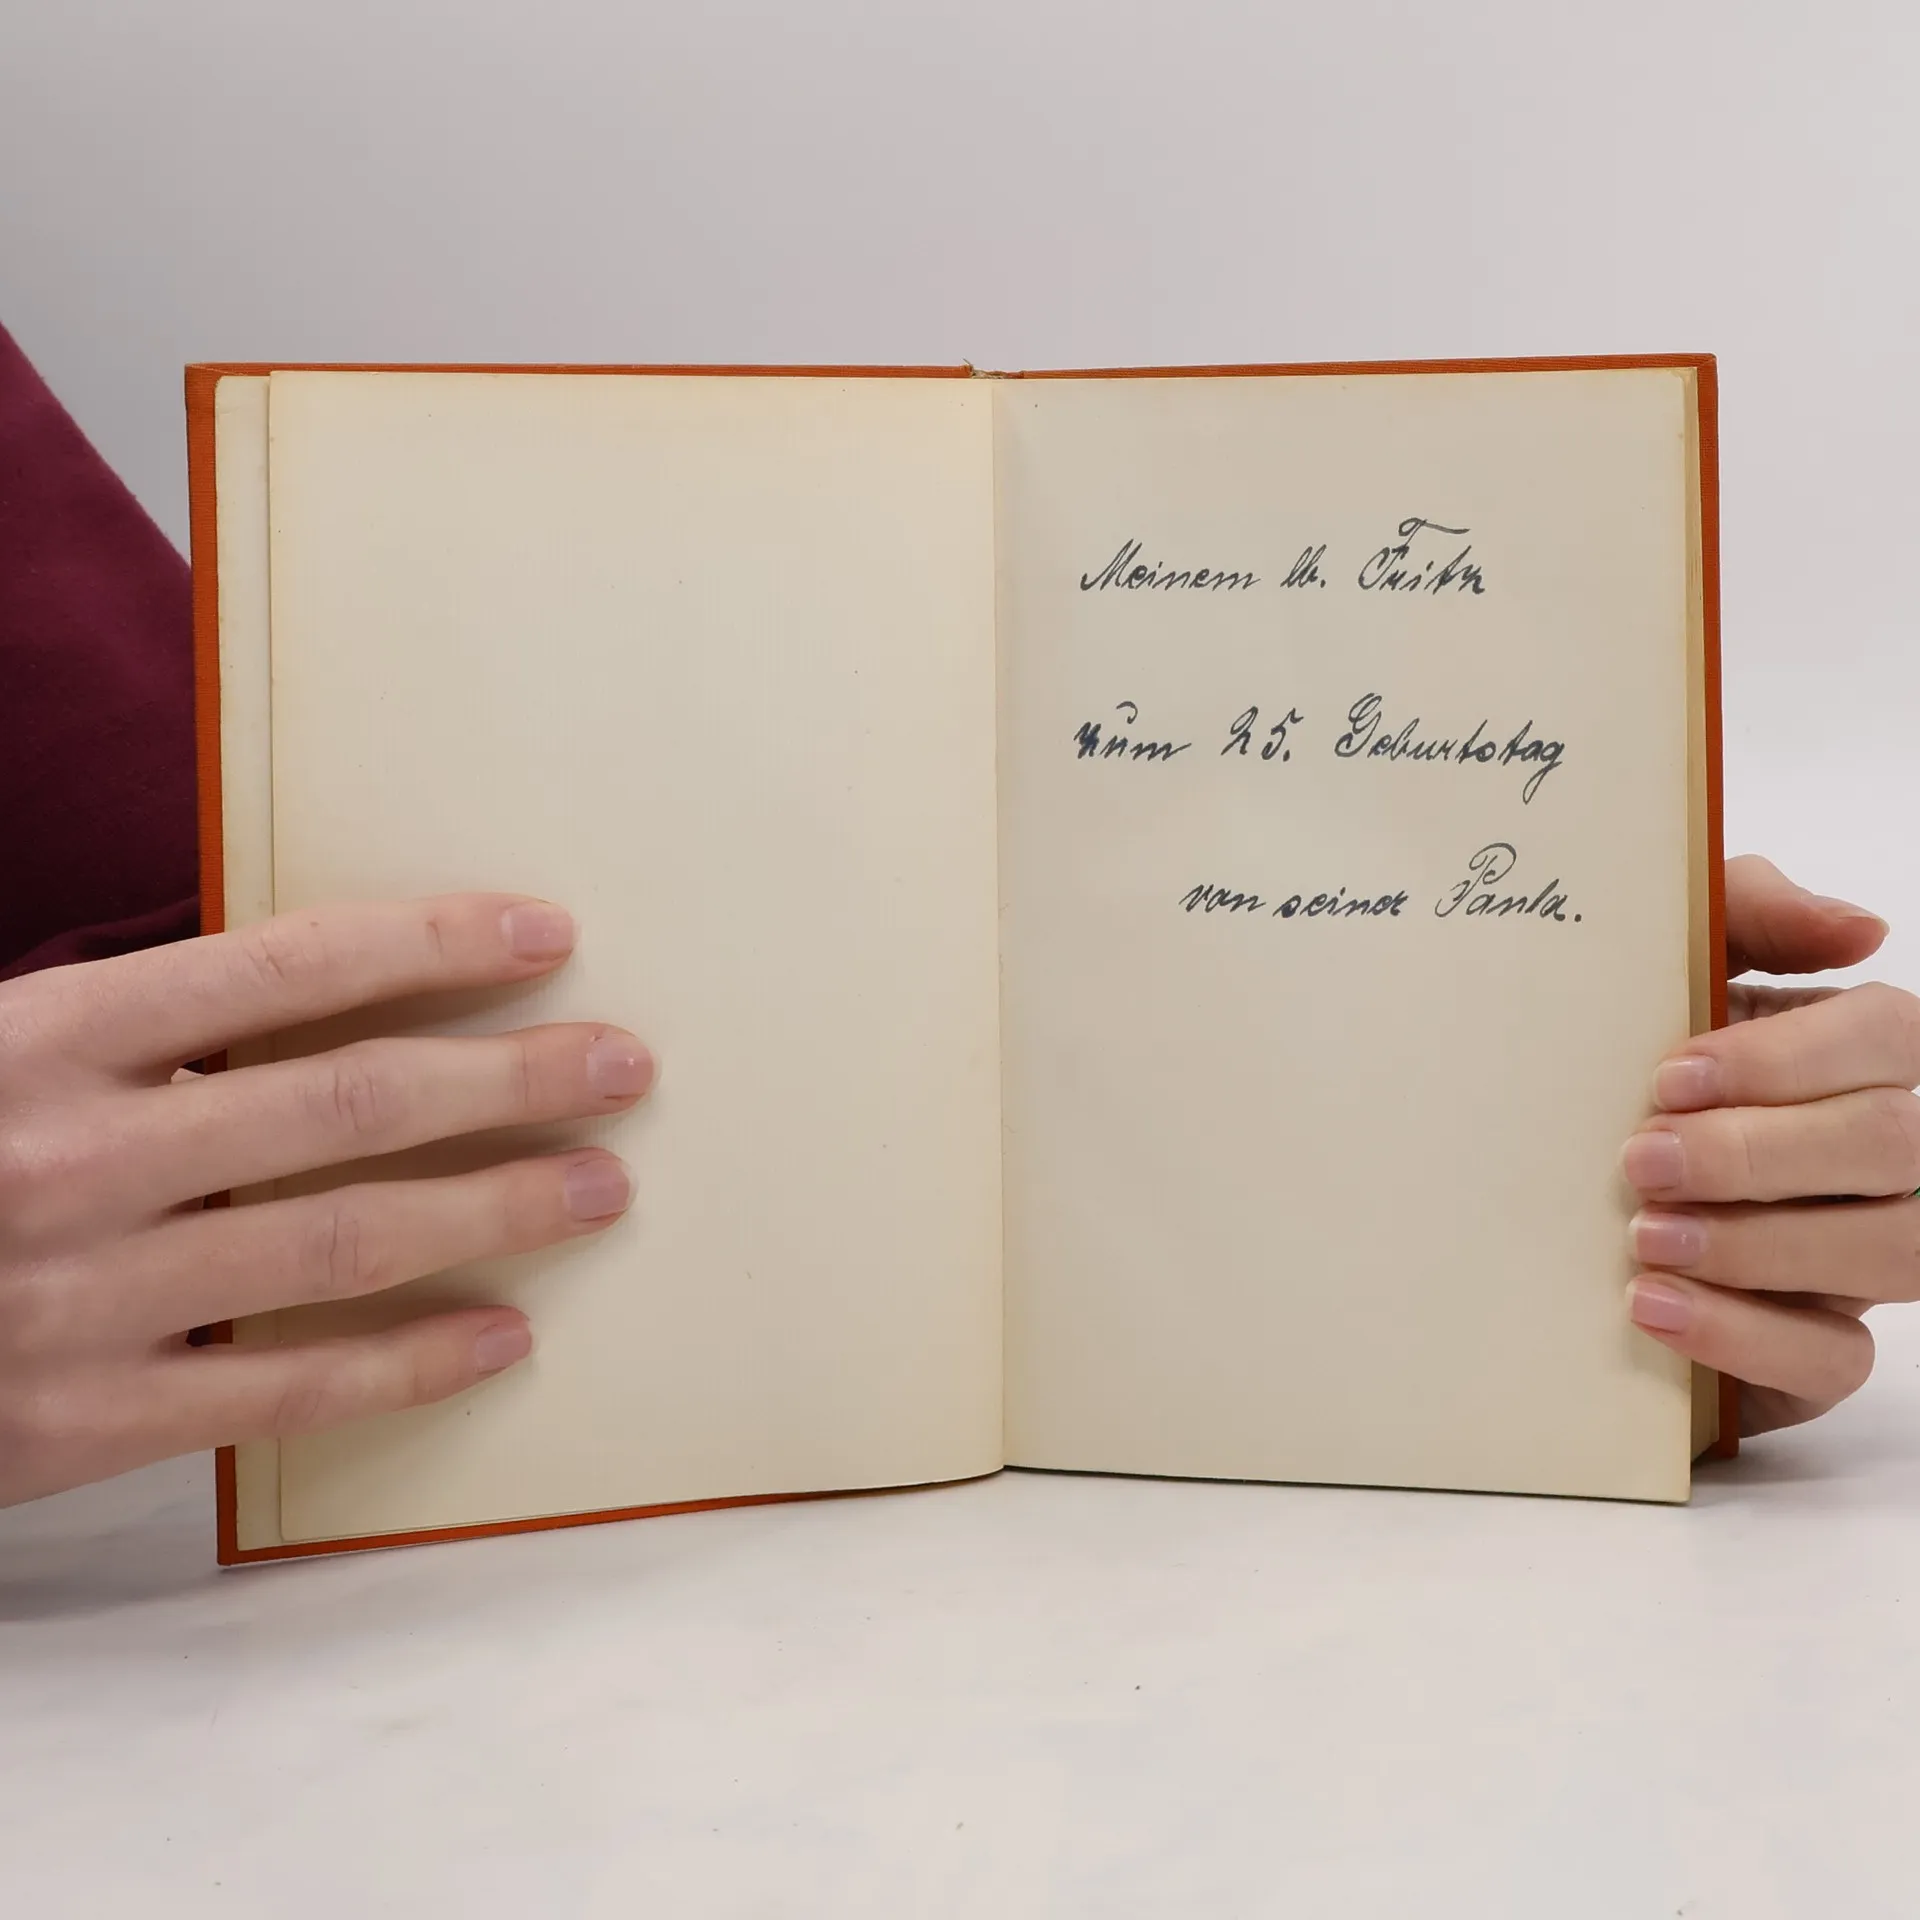 Meinem lb. Fritz
zum 25. Geburtstag
von seiner Paula.